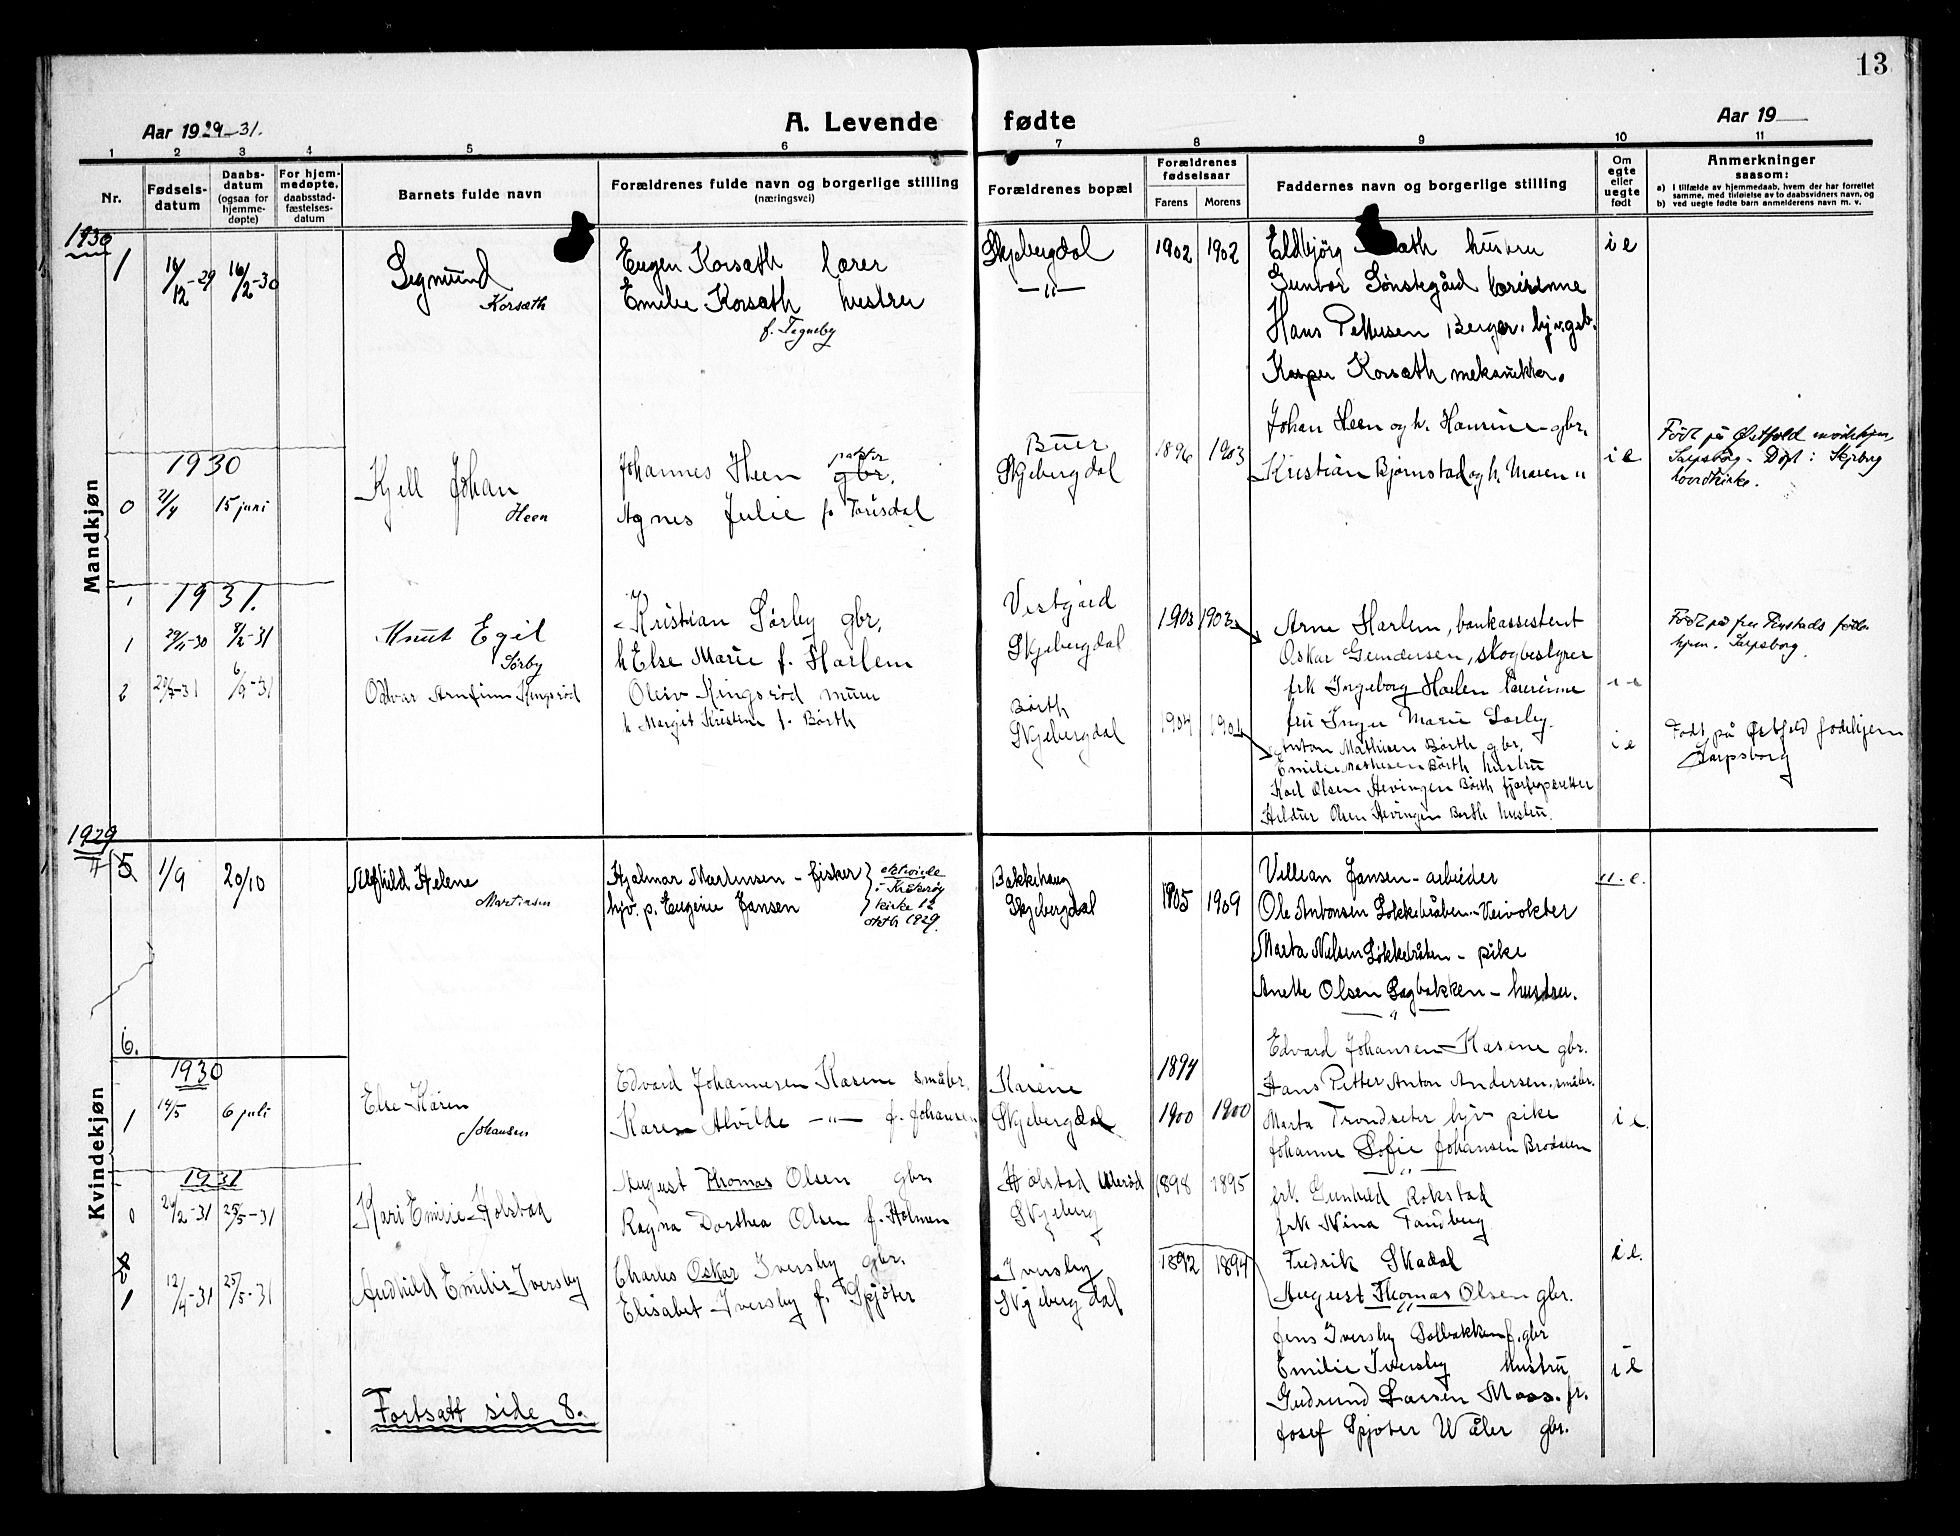 13
Aar 1929-31.
A. Levende fødte
Aar 19
1 2 3 4 5 6 7 8 9 10 11
Nr.
Fødsels-
datum
Daabs-
datum
(ogsaa for
hjemme-
døpte)
For hjem-
medøpte,
daabsstad-
fæstelses-
datum
Barnets fulde navn
Forældrenes fulde navn og borgerlige stilling
(næringsvei)
Forældrenes bopæl
Forældrenes
fødselsaar
Farens
Morens
Faddernes navn og borgerlige stilling
Om
egte
eller
uegte
født
Anmerkninger
saasom:
a) i tilfælde av hjemmedaab, hvem der har forrettet
samme, med tilføielse av to daabsvidners navn, og
b) ved uegte fødte barn anmelderens navn m. v.
Mandkjøn
1930
1
16/12-29
16/2-30
Sigmund
Korsæth
Eugen Korsæth lærer
Emelie Korsæth hustru
f. Tegneby
Skjebergdal
—"—
1902 1902
Eldbjørg hustru
Gunvor Sønstegård lærerinne
Hans Pettersen Berger
Kasper Korsæth mekaniker.
i e
1930
0
2/4
15 juni
Kjell Johan
Heen
Johannes Heen gbr.
Agnes Julie f. Torisdal
Buer
Skjebergdal
1896 1903
Johan Heen og h. Hansine gbr.
Kristian Bjørnstad og h. Maren "
i e
Født på Østfold mødrehjem,
Sarpsborg. Døpt i Skjeberg
hovedkirke.
1931.
1
1
29/11-30
8/2-31
Knut Egil
Sørby
Kristian Sørby gbr,
h Else Marie f. Harlem
Vestgård
Skjebergdal
1903 1903
Arne Harlem, bankassistent
Oskar Gundersen, skogbestyrer
frk Ingeborg Harlem lærerinne
fru Inger Marie Sørby.
i e
Født på fru
hjem. Sarpsborg.
2
6/9-31
Oddvar Arnfinn Kingsrød
Oleiv Kingsrød murer
h Margit Kristine f. Børth
Børth
Skjebergdal
1904 1904
Anton Mathisen Børth gbr.
Emilie Mathisen Børth hustru
Karl Olsen Hevingen Børth
Hildur Olsen Hevingen Børth hustru.
i e
Født på Østfold fødehjem
Sarpsborg
Kvindekjøn
1929
5
1/9
20/10
Alfhild Helene
Martinsen
Hjalmar Martinsen - fisker
hjv. p. Eugenie Jansen
ektevidde
i Kråkerøy
kirke 12
oktbr 1929.
Bakkehaug
Skjebergdal
1905 1909
Villian Jansen - arbeider
Ole Antonsen Løkkebråten - Veivokter
Marta Nilsen Løkkebråten - pike
Anette Olsen Sagbakken - hustru.
u. e.
6.
1930
1
14/5
6 juli
Else Karen
Johansen
Edvard Johannesen Kasene småbr.
Karen Alvilde —"— f. Johansen
Kasene
Skjebergdal
1894
1900 1900
Edvard Johansen Kasene gbr.
Hans Petter Anton Andersen, småbr.
Marta Trondseter hjv pike
Johanne Sofie Johansen Brodseen
i e.
1931
0
24/2-31
25/5-31
Kari Emilie Holstad
August Thomas Olsen gbr.
Ragna Dorthea Olsen f. Holmen
Holstad Ulerød
Skjeberg
1898 1895
frk. Gunhild Rokstad
frk Nina Tandberg
Fredrik Skadal
August Thomas Olsen gbr.
i e.
1
12/4-31
25/5-31
Audhild Emilie Iversby
Charles Oskar Iversby gbr.
Elisabet Iversby f. Spjøter
Iversby
Skjebergdal
1892 1894
Jens Iversby Solbakken f. gbr
Emilie Iversby hustru
Gudrund Larsen Moss. fr.
Josef Spjøter Våler gbr.
i e
Fortsatt side 8.